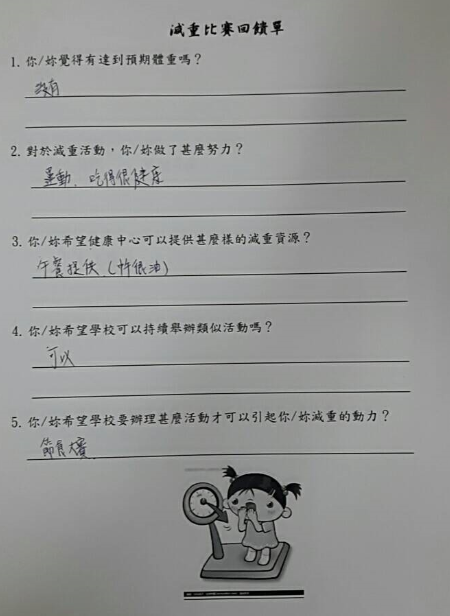 減重比賽回饋單
1. 你/妳覺得有達到預期體重嗎？
沒有
2. 對於減重活動，你/妳做了甚麼努力？
運動、吃得很健康
3. 你/妳希望健康中心可以提供甚麼樣的減重資源？
午餐提供（忤很油）
4. 你/妳希望學校可以持續舉辦類似活動嗎？
可以
5. 你/妳希望學校要辦理甚麼活動才可以引起你/妳減重的動力？
節食大賽